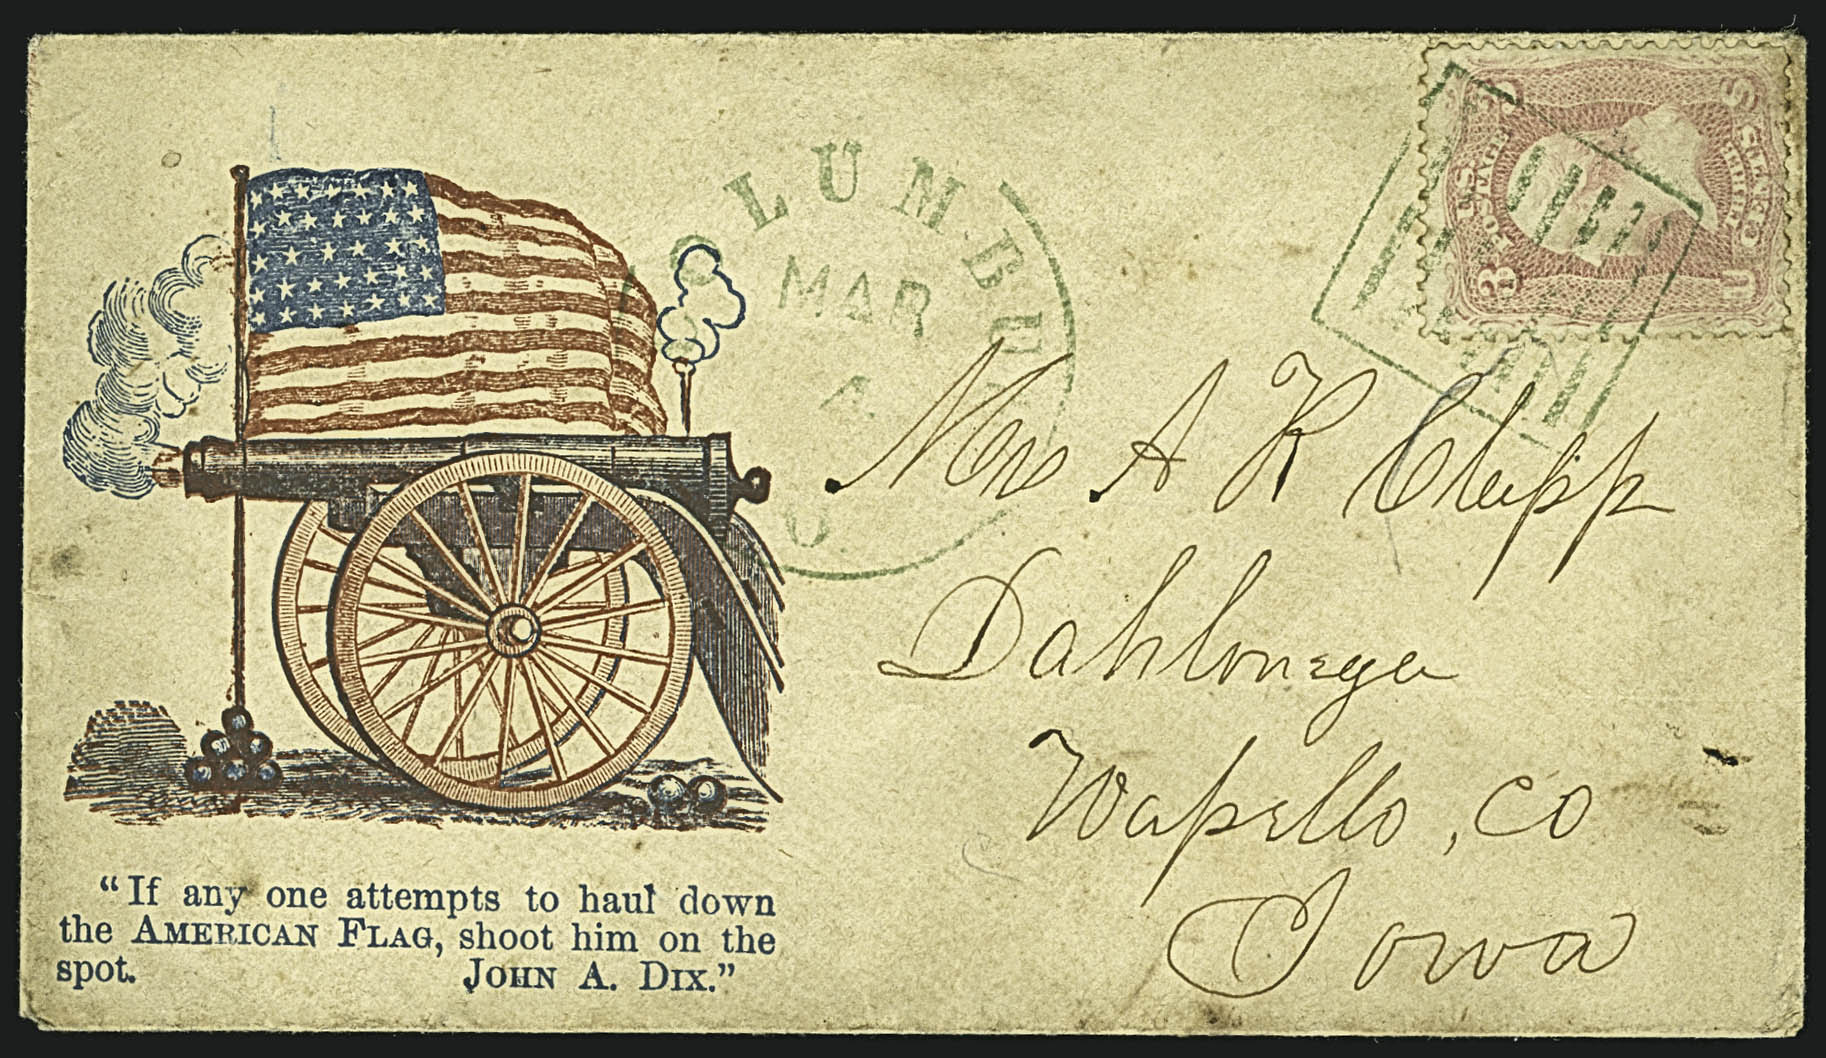 COLUMBUS
MAR
4
O.
U.S. POSTAGE
THREE CENTS
U S
3 3
Mr A K Clapp
Dahlonega
Wapello, Co
Iowa
"If any one attempts to haul down
the AMERICAN FLAG, shoot him on the
spot. JOHN A. DIX."